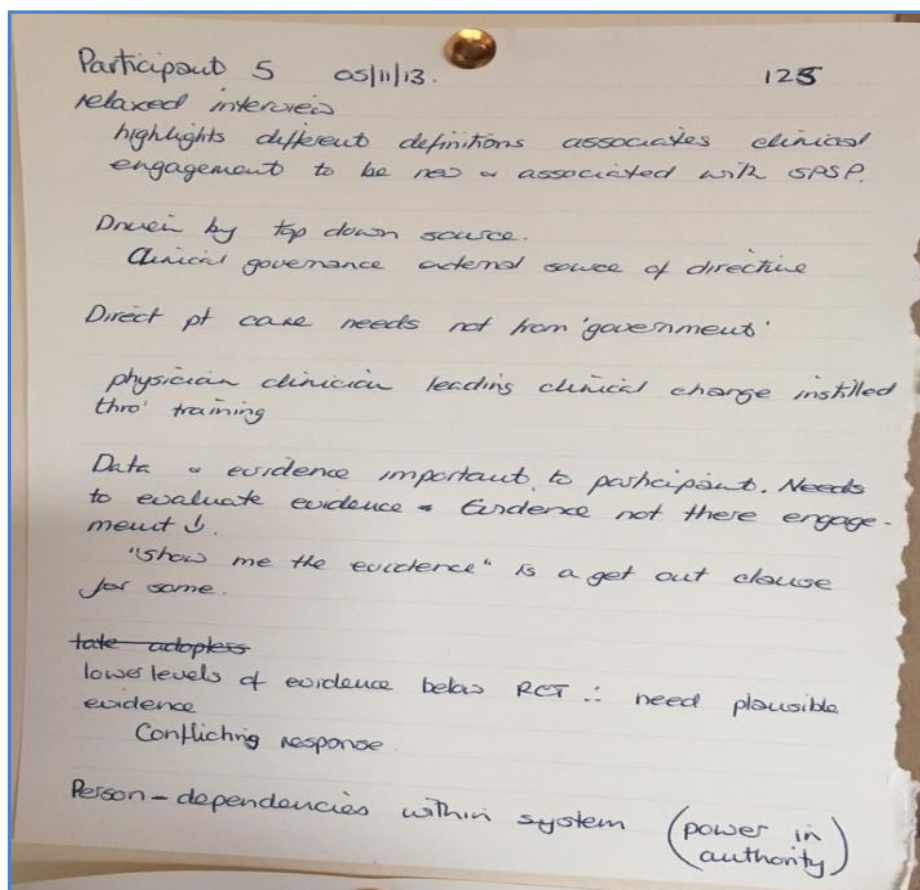 Participant 5 05/11/13. 125
relaxed interview
highlights different definitions associates clinical
engagement to be new & associated with SPSP.
Driven by top down source.
Clinical governance external source of directive
Direct pt care needs not from 'government'
physician clinician leading clinical change instilled
thro' training
Data & evidence important to participant. Needs
to evaluate evidence & Evidence not there engage-
ment ↓.
"show me the evidence" is a get out clause
for some.
late adopters
lower levels of evidence below RCT ∴ need plausible
evidence
Conflicting response.
Person-dependencies within system (power in
authority)